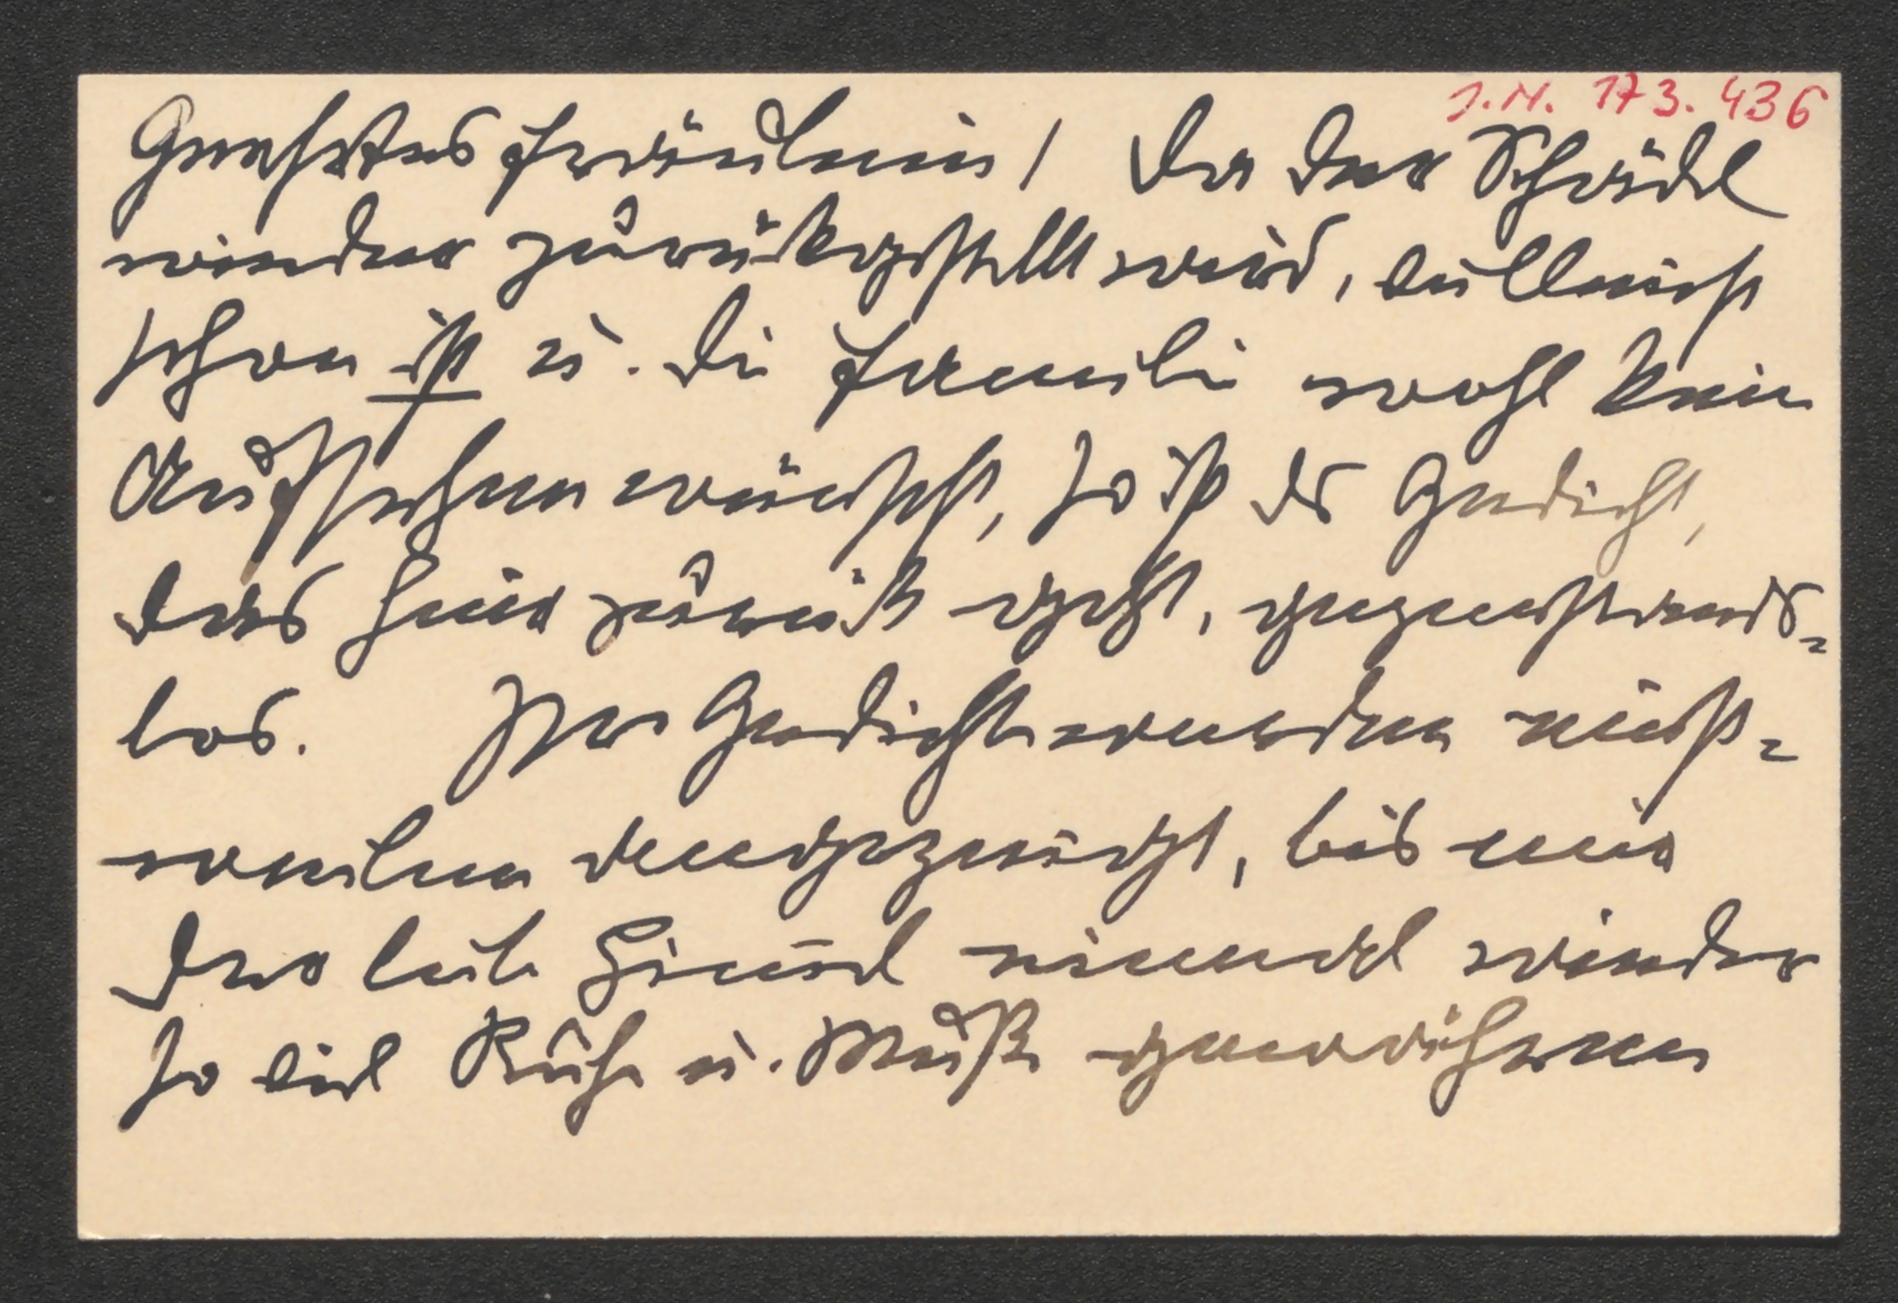 J.N. 173.436
Geehrtes Fräulein! Da der Schädel
wieder zurückgestellt wird, vielleicht
schon ist u. die Familie wohl kein
Aufsehen wünscht, so ist das Gedicht,
das hier zurück geht, gegenstands-
los. Ihre Gedichte werden einst-
weilen angezeigt, bis mir
der liebe Himmel einmal wieder
so viel Ruhe u. Muße gewähren